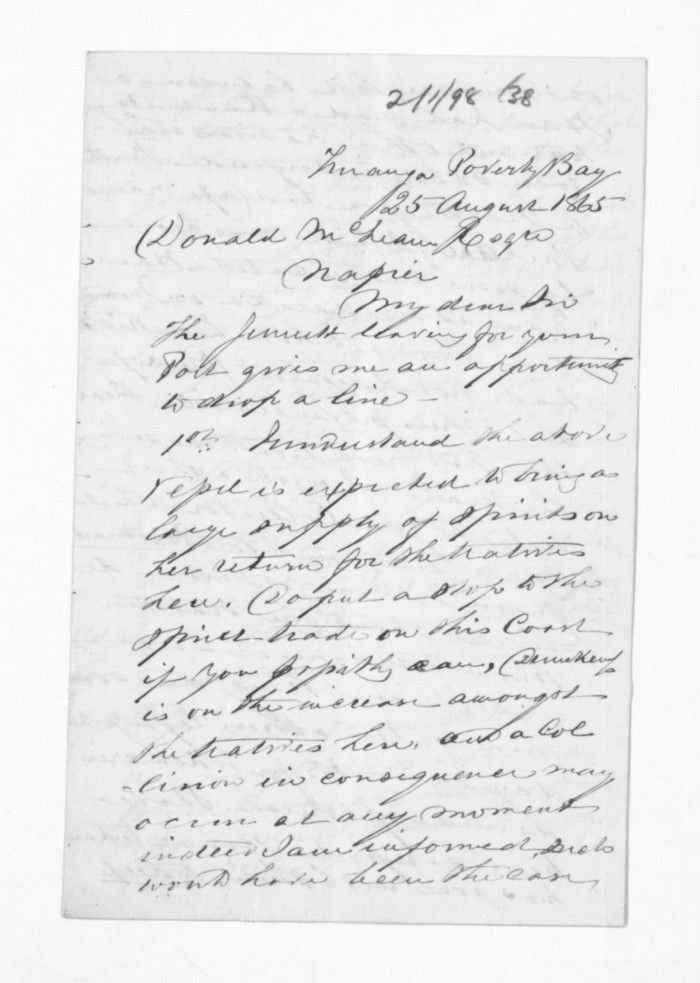 2/1/98 /38
Turanga Poverty Bay
25 August 1865
Donald McLean Esqre
Napier
My dear Sir
The leaving for your
Port gives me an opportunity
to drop a line -
1st I understand the above
Vessel is expected to bring a
large supply of spirits on
her return for the Natives
here. Do put a stop to the
spirit trade on this Coast
if you possibly can, Drunkenness
is on the increase amongst
the Natives here. and a Col
-lision in consequence may
occur at any moment
indeed I am informed such
would have been the case